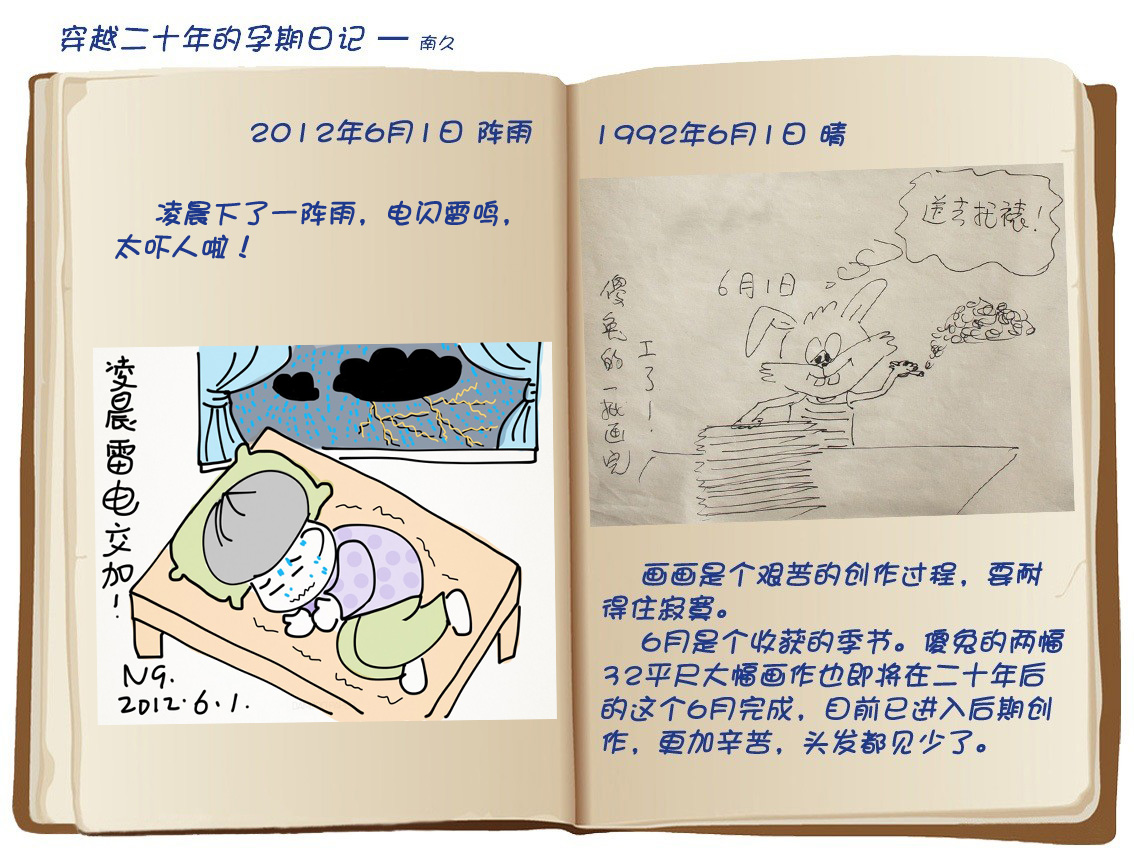 穿越二十年的孕期日记 — 南久
2012年6月1日 阵雨
凌晨下了一阵雨，电闪雷鸣，
太吓人啦！
凌晨雷电交加！
N9.
2012.6.1.
1992年6月1日 晴
送去托裱！
6月1日
傻兔的一批画完
工了！
画画是个艰苦的创作过程，要耐
得住寂寞。
6月是个收获的季节。傻兔的两幅
32平尺大幅画作也即将在二十年后
的这个6月完成，目前已进入后期创
作，更加辛苦，头发都见少了。